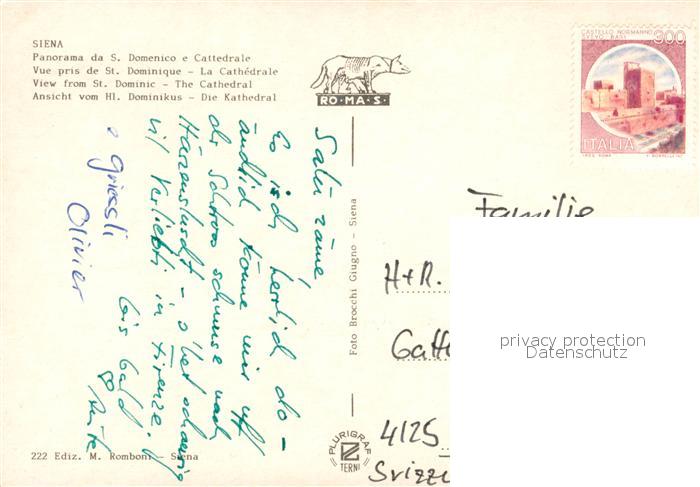 SIENA
Panorama da S. Domenico e Cattedrale
Vue pris de St. Dominique - La Cathédrale
View from St. Dominic - The Cathedral
Ansicht vom Hl. Dominikus - Die Kathedral
RO·MA·S·
CASTELLO NORMANNO
SVEVO · BARI
300
ITALIA
Salü zäme
Es isch herrlich do-
ändlich könne mir uff
dr Schtroos schmuse nach
Härzensluscht - s'het
vil Verliebti in Firenze.
bis bald
e griessli
Olivier
Foto Brocchi Giugno - Siena
Familie
H+R.
Gatt
4125
Svizze
privacy protection
Datenschutz
PLURIGRAF
TERNI
222 Ediz. M. Romboni - Siena